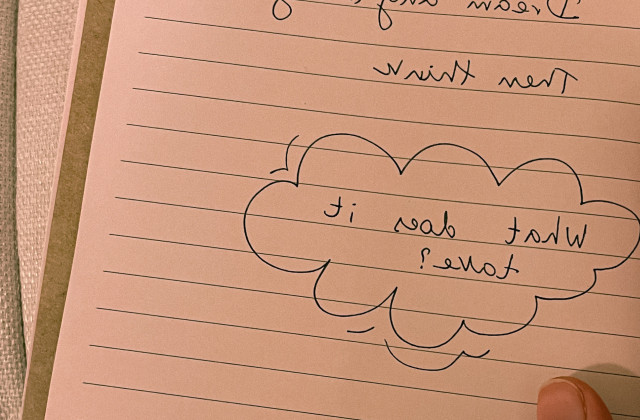 Dream
Then think
What does it
take?